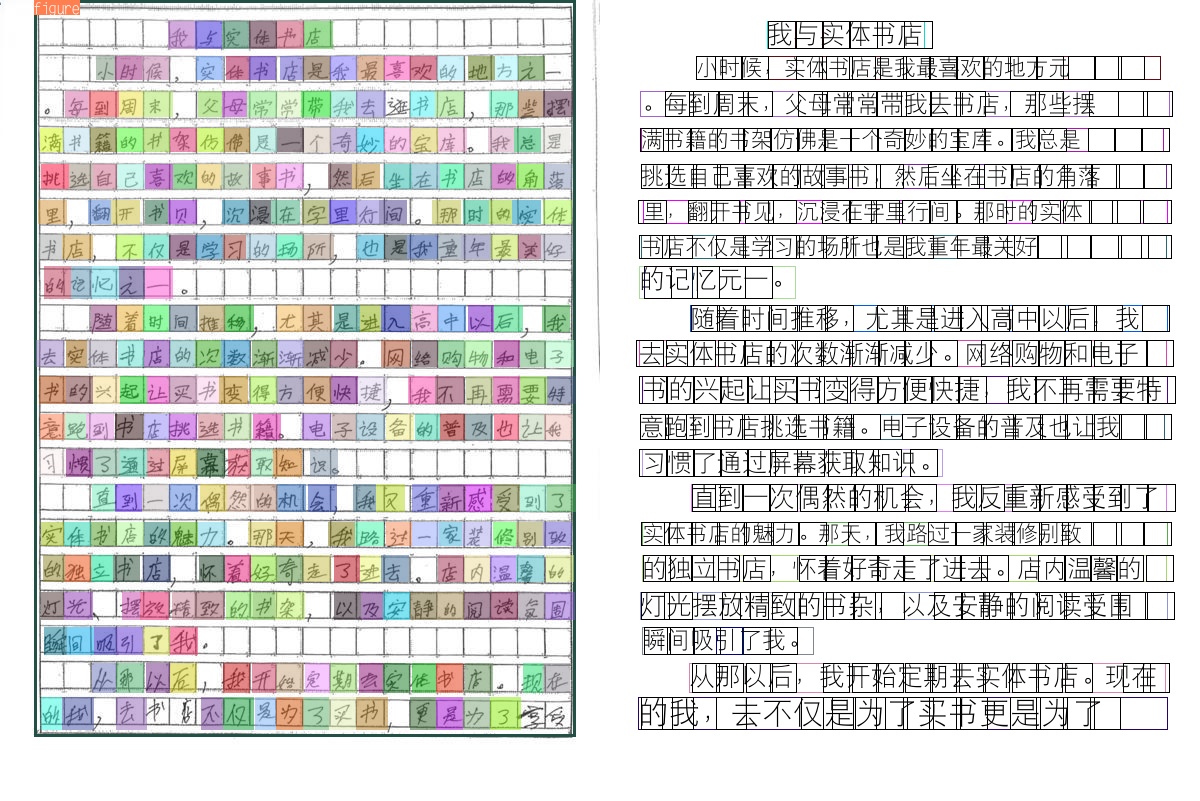 figure
我与实体书店
小时候，实体书店是我最喜欢的地方之一
。每到周末，父母常常带我去逛书店，那些摆
满书籍的书架仿佛是一个奇妙的宝库。我总是
挑选自己喜欢的故事书，然后坐在书店的角落
里，翻开书页，沉浸在字里行间。那时的实体
书店，不仅是学习的场所，也是我童年最美好
的记忆之一。
随着时间推移，尤其是进入高中以后，我
去实体书店的次数渐渐减少。网络购物和电子
书的兴起让买书变得方便快捷，我不再需要特
意跑到书店挑选书籍。电子设备的普及也让我
习惯了通过屏幕获取知识。
直到一次偶然的机会，我又重新感受到了
实体书店的魅力。那天，我路过一家装修别致
的独立书店，怀着好奇走了进去。店内温馨的
灯光、摆放精致的书架，以及安静的阅读氛围
瞬间吸引了我。
从那以后，我开始定期去实体书店。现在
的我，去书店不仅是为了买书，更是为了享受
我与实体书店
小时候，实体书店是我最喜欢的地方元
。每到周末，父母常常带我去书店，那些摆
满书籍的书架仿佛是十个奇妙的宝库。我总是
挑选自己喜欢的故事书，然后坐在书店的角落
里，翻开书见，沉浸在字里行间。那时的实体
书店不仅是学习的场所也是我重年最关好
的记忆元一。
随着时间推移，尤其是进入高中以后，我
去实体书店的次数渐渐减少。网络购物和电子
书的兴起让买书变得方便快捷，我不再需要特
意跑到书店挑选书籍。电子设备的普及也让我
习惯了通过屏幕获取知识。
直到一次偶然的机会，我反重新感受到了
实体书店的魅力。那天，我路过一家装修别散
的独立书店，怀着好奇走了进去。店内温馨的
灯光摆放精致的书杂，以及安静的阅读受围
瞬间吸引了我。
从那以后，我开始定期去实体书店。现在
的我，去不仅是为了买书更是为了